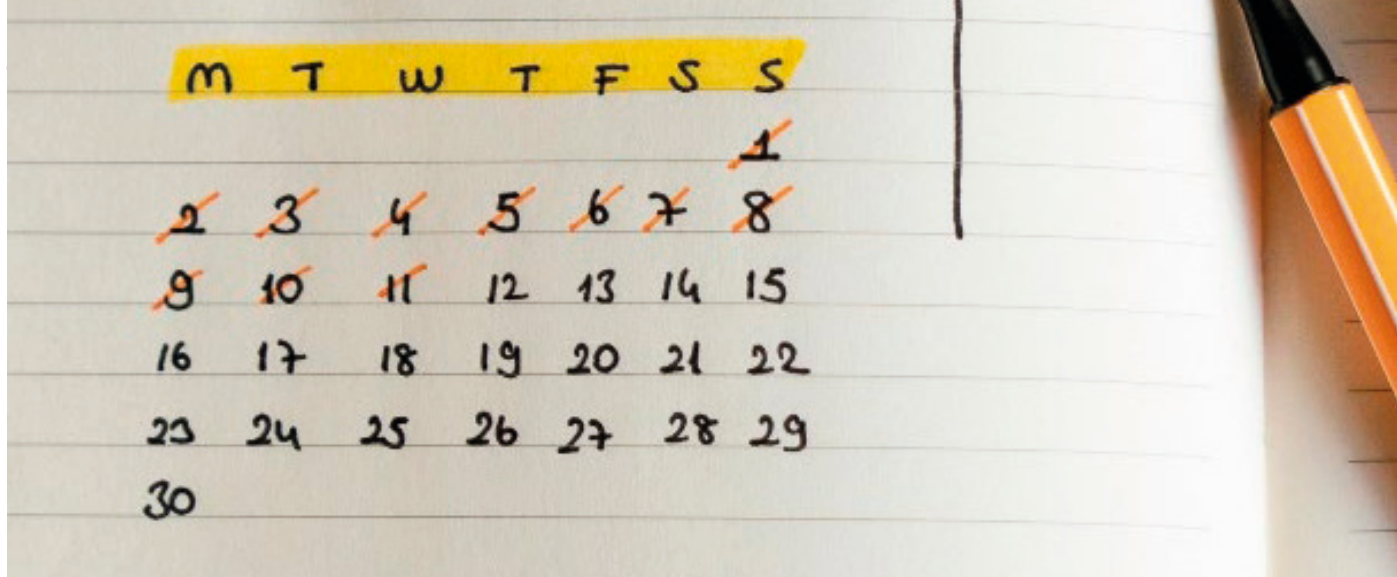 M T W T F S S
1
2 3 4 5 6 7 8
9 10 11 12 13 14 15
16 17 18 19 20 21 22
23 24 25 26 27 28 29
30